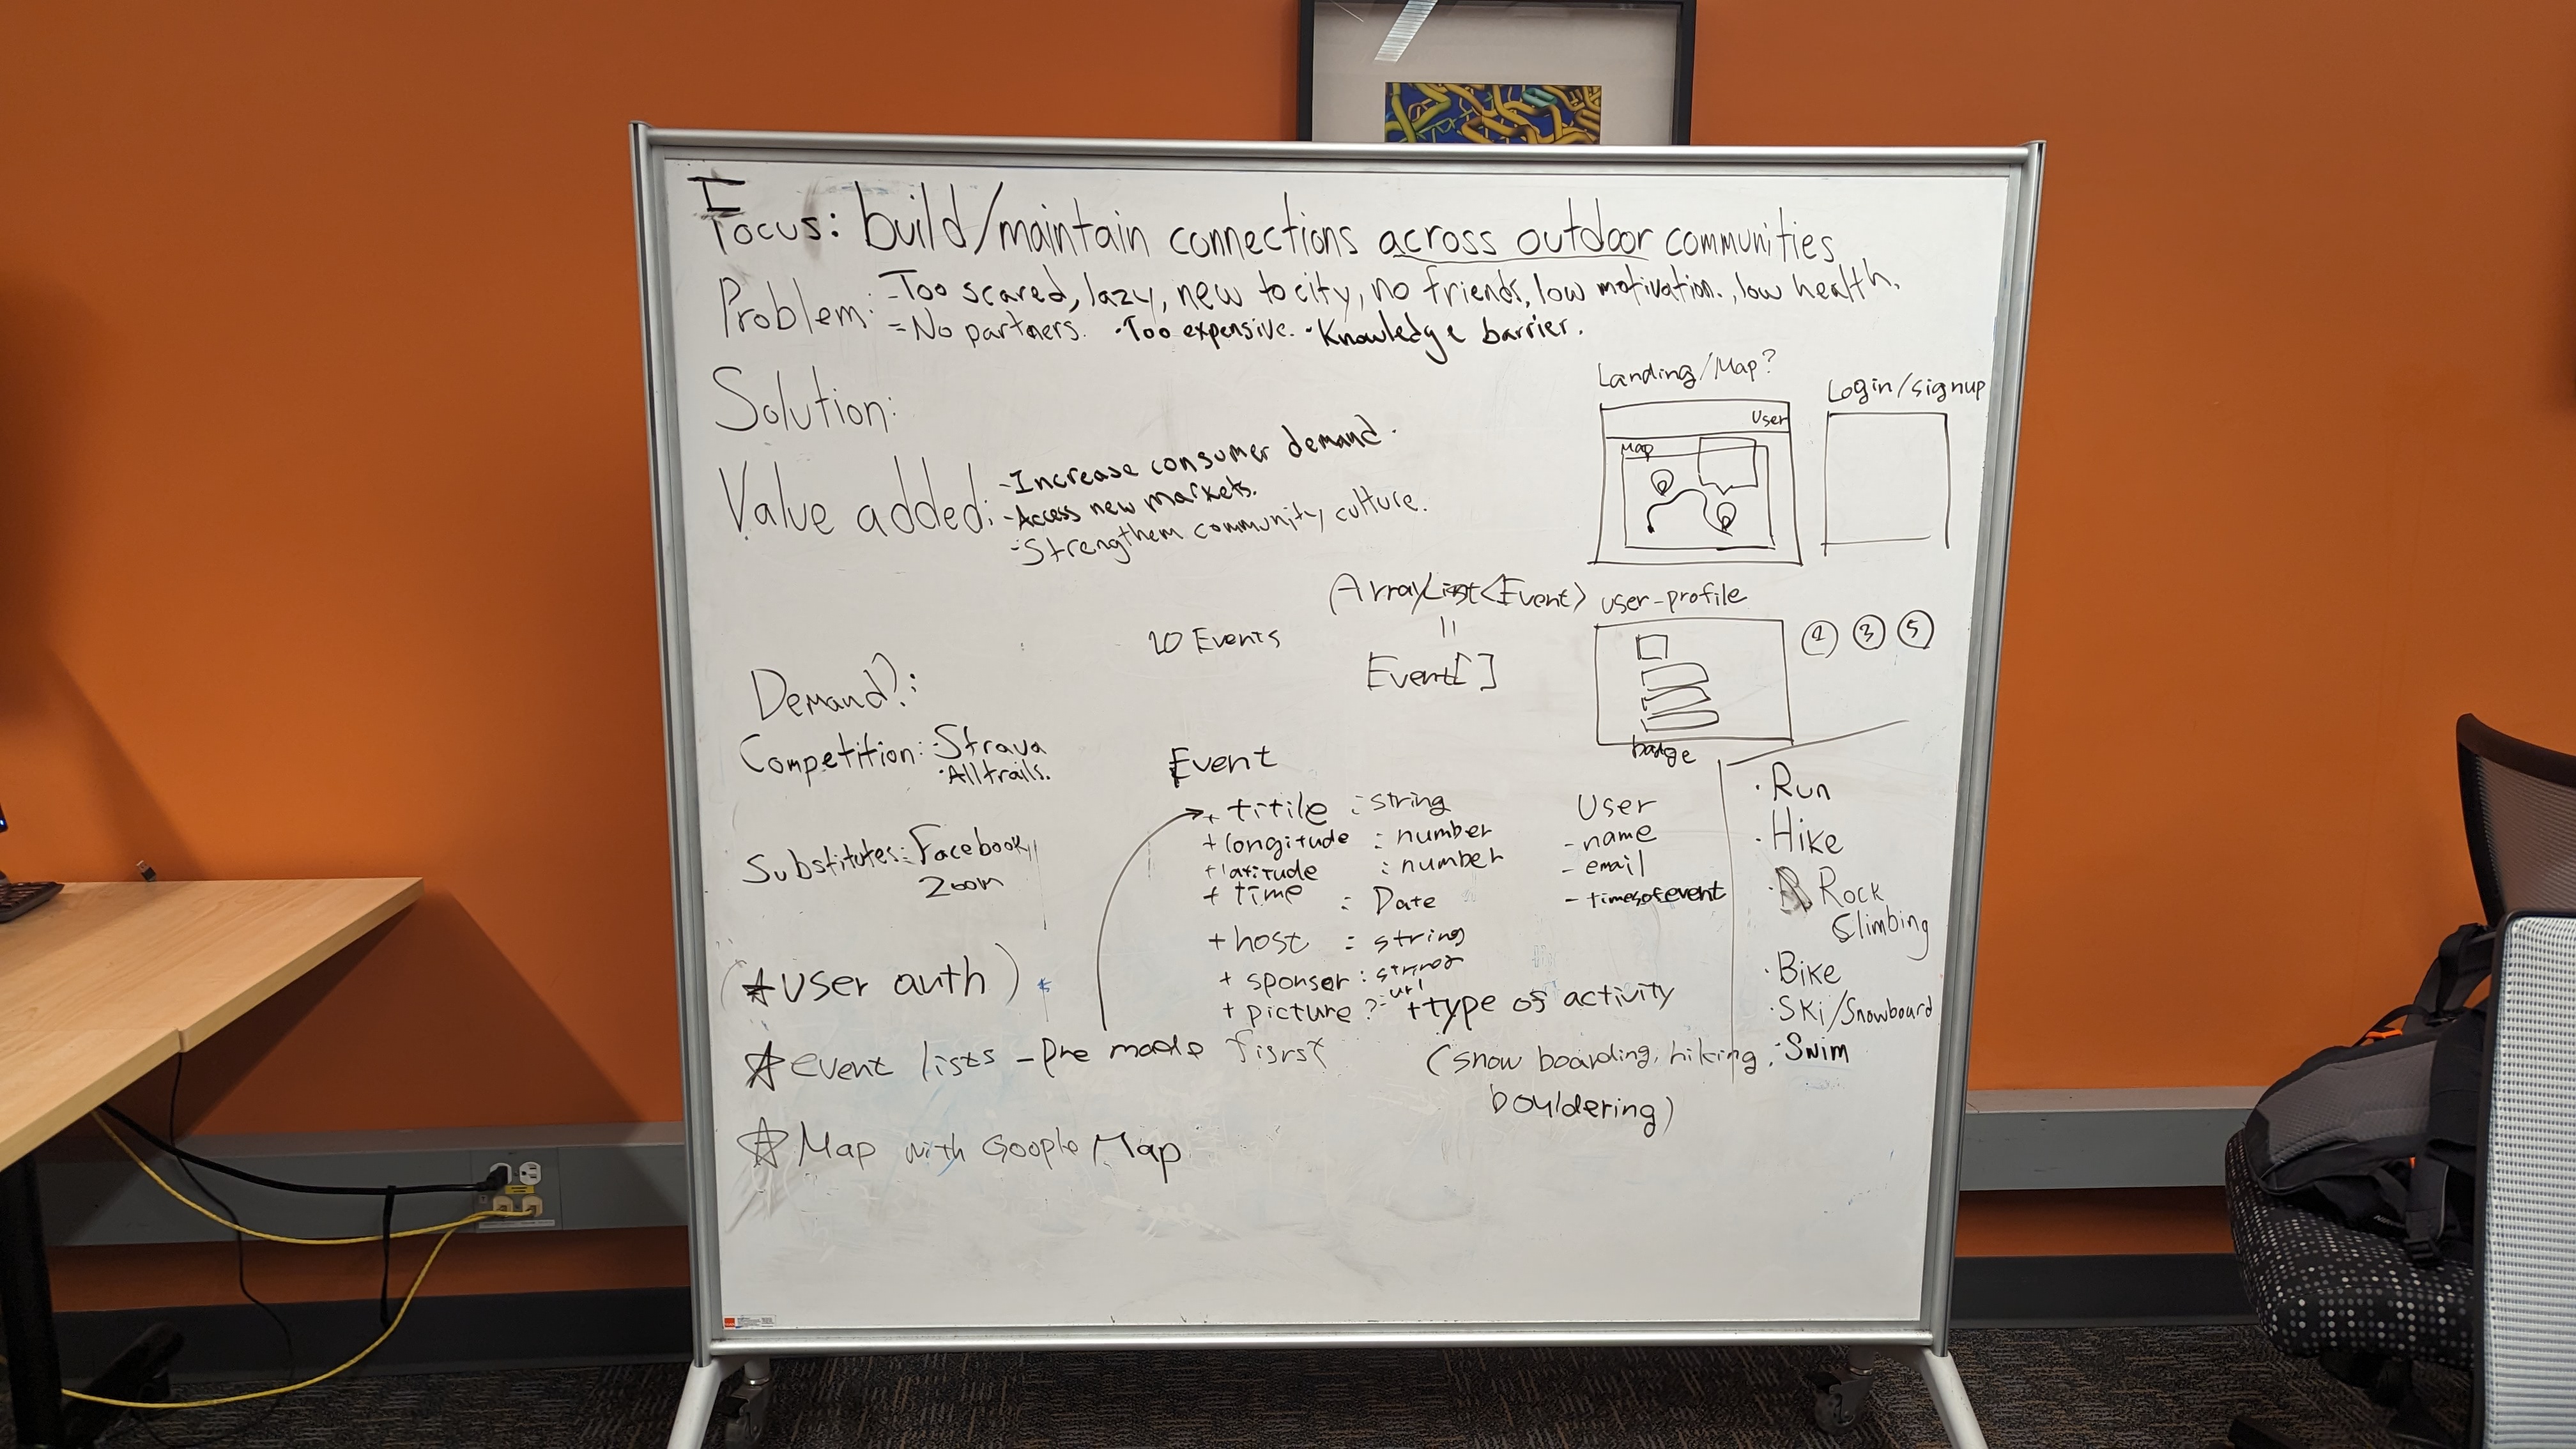 Focus: build/maintain connections across outdoor communities
Problem: -Too scared, lazy, new to city, no friends, low motivation., low health.
=No partners. ·Too expensive. ·Knowledge barrier.
Solution:
Value added: -Increase consumer demand.
-Access new markets.
-Strengthem community culture.
Landing/Map?
User
Map
Login/signup
ArrayList<Event>
=
Event[]
20 Events
user-profile
badge
③ ⑤
Demand?:
Competition: ·Strava
·Alltrails.
Substitutes: Facebook
Zoom
Event
+ titile : string
+ longitude : number
+ latitude : number
+ time : Date
+ host : string
+ sponser : string
+ picture ? : url
+ type of activity
(snow boarding, hiking,
bouldering)
User
- name
- email
- timesofevent
· Run
· Hike
· Rock
Climbing
· Bike
· Ski/Snowboard
· Swim
(☆ user auth)
☆ event lists - Pre made fisrst
☆ Map with Google Map